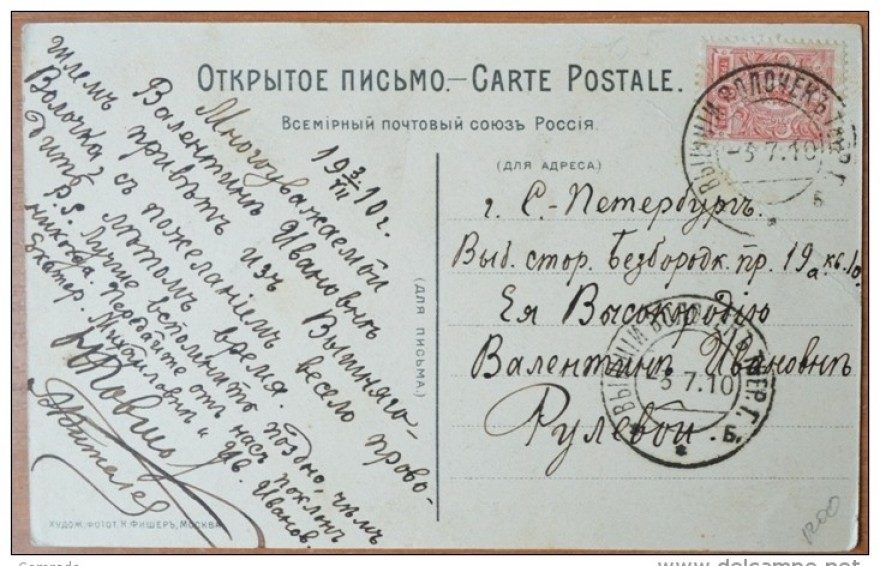 Открытое письмо.—Carte Postale.
Всемірный почтовый союзъ Россія.
(для адреса.)
(для письма.)
19 3/VII 10 г.
Многоуважаемой
Валентинѣ Ивановнѣ
шлемъ привѣтъ изъ Вышняго-
Волочка съ пожеланіемъ весело прово-
дить лѣтомъ время.
P.S. Лучше вспомнить поздно, чѣмъ
никогда. Передайте отъ насъ поклонъ
Екатер. Михайловнѣ и Ив. Иванов.
г. С.-Петербургъ.
Выб. стор. Безбородк. пр. 19а кв. 10.
Ея Высокродію
Валентинѣ Ивановнѣ
Рулевой.
ВЫШНІЙ ВОЛОЧЕКЪ ТВЕР. Г.
-3 7.10
Б
ВЫШНІЙ ВОЛОЧЕКЪ ТВЕР. Г.
-3 7.10
Б.
Худож. фотот. К. Фишеръ, Москва.
1200
www.delcampe.net